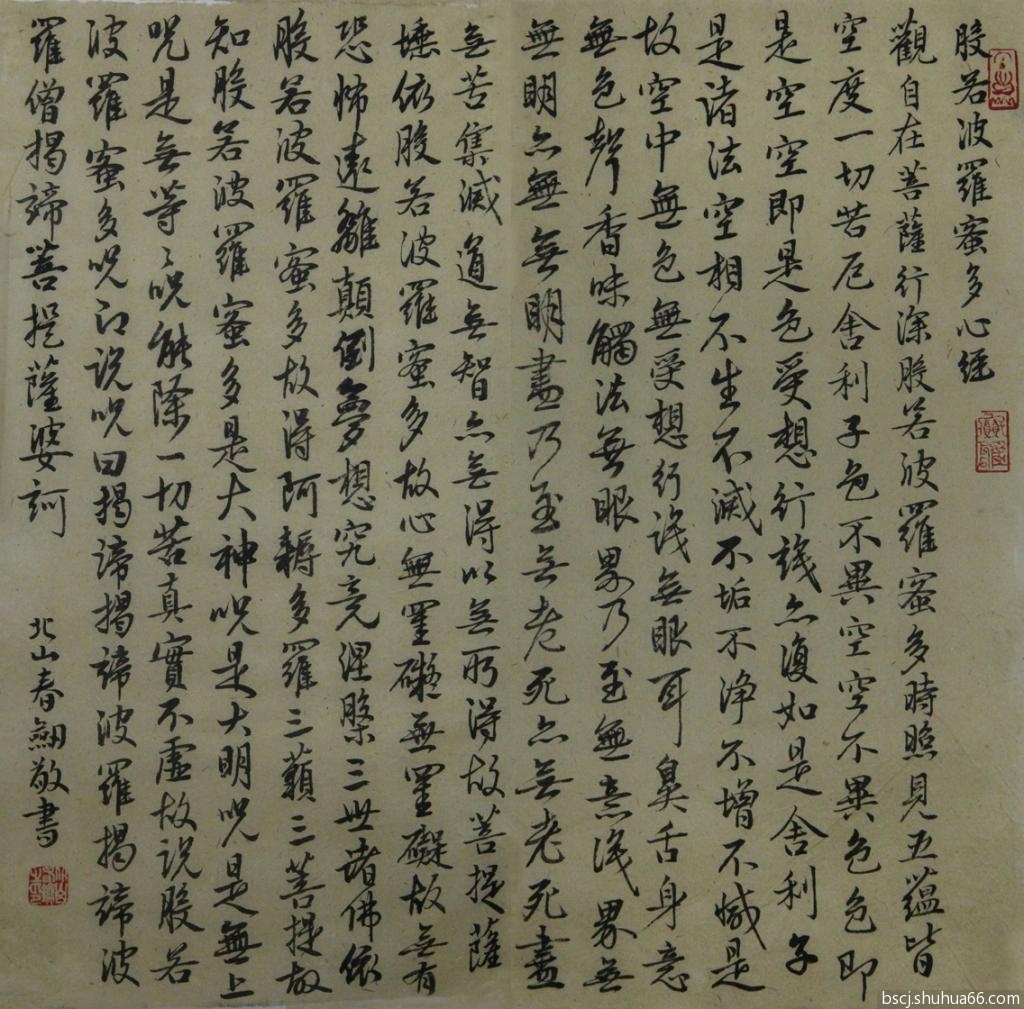 般若波羅蜜多心經
觀自在菩薩行深般若波羅蜜多時照見五蘊皆
空度一切苦厄舍利子色不異空空不異色色即
是空空即是色受想行識亦復如是舍利子
是諸法空相不生不滅不垢不淨不增不減是
故空中無色無受想行識無眼耳鼻舌身意
無色聲香味觸法無眼界乃至無意識界無
無明亦無無明盡乃至無老死亦無老死盡
無苦集滅道無智亦無得以無所得故菩提薩
埵依般若波羅蜜多故心無罣礙無罣礙故無有
恐怖遠離顛倒夢想究竟涅槃三世諸佛依
般若波羅蜜多故得阿耨多羅三藐三菩提故
知般若波羅蜜多是大神咒是大明咒是無上
咒是無等々咒能除一切苦真實不虛故說般若
波羅蜜多咒即說咒曰揭諦揭諦波羅揭諦波
羅僧揭諦菩提薩婆訶
北山春敬書
bscj.shuhua66.com